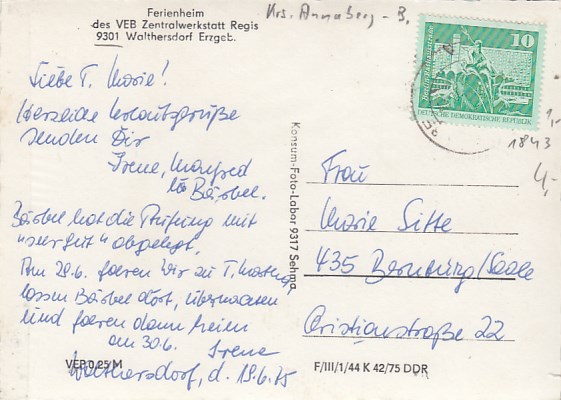 Ferienheim
des VEB Zentralwerkstatt Regis
9301 Walthersdorf Erzgeb.
Krs. Annaberg - B.
10
Berlin, Neptunbrunnen
DEUTSCHE DEMOKRATISCHE REPUBLIK
1,-
1843
4,-
Liebe T. Marie!
Herzliche Urlaubsgrüße
senden Dir
Irene, Manfred
Bärbel.
Bärbel hat die Prüfung mit
"sehr gut" abgelegt.
Am 29.6. faeren wir zu T. Martha,
lassen Bärbel dort, übernachten
und faeren dann heim
am 30.6. Irene
Walthersdorf, d. 19.6.75
VEP 0,25 M
Konsum-Foto-Labor 9317 Sehma
Frau
Marie Sitte
435 Bernburg/Saale
Cristianstraße 22
F/III/1/44 K 42/75 DDR